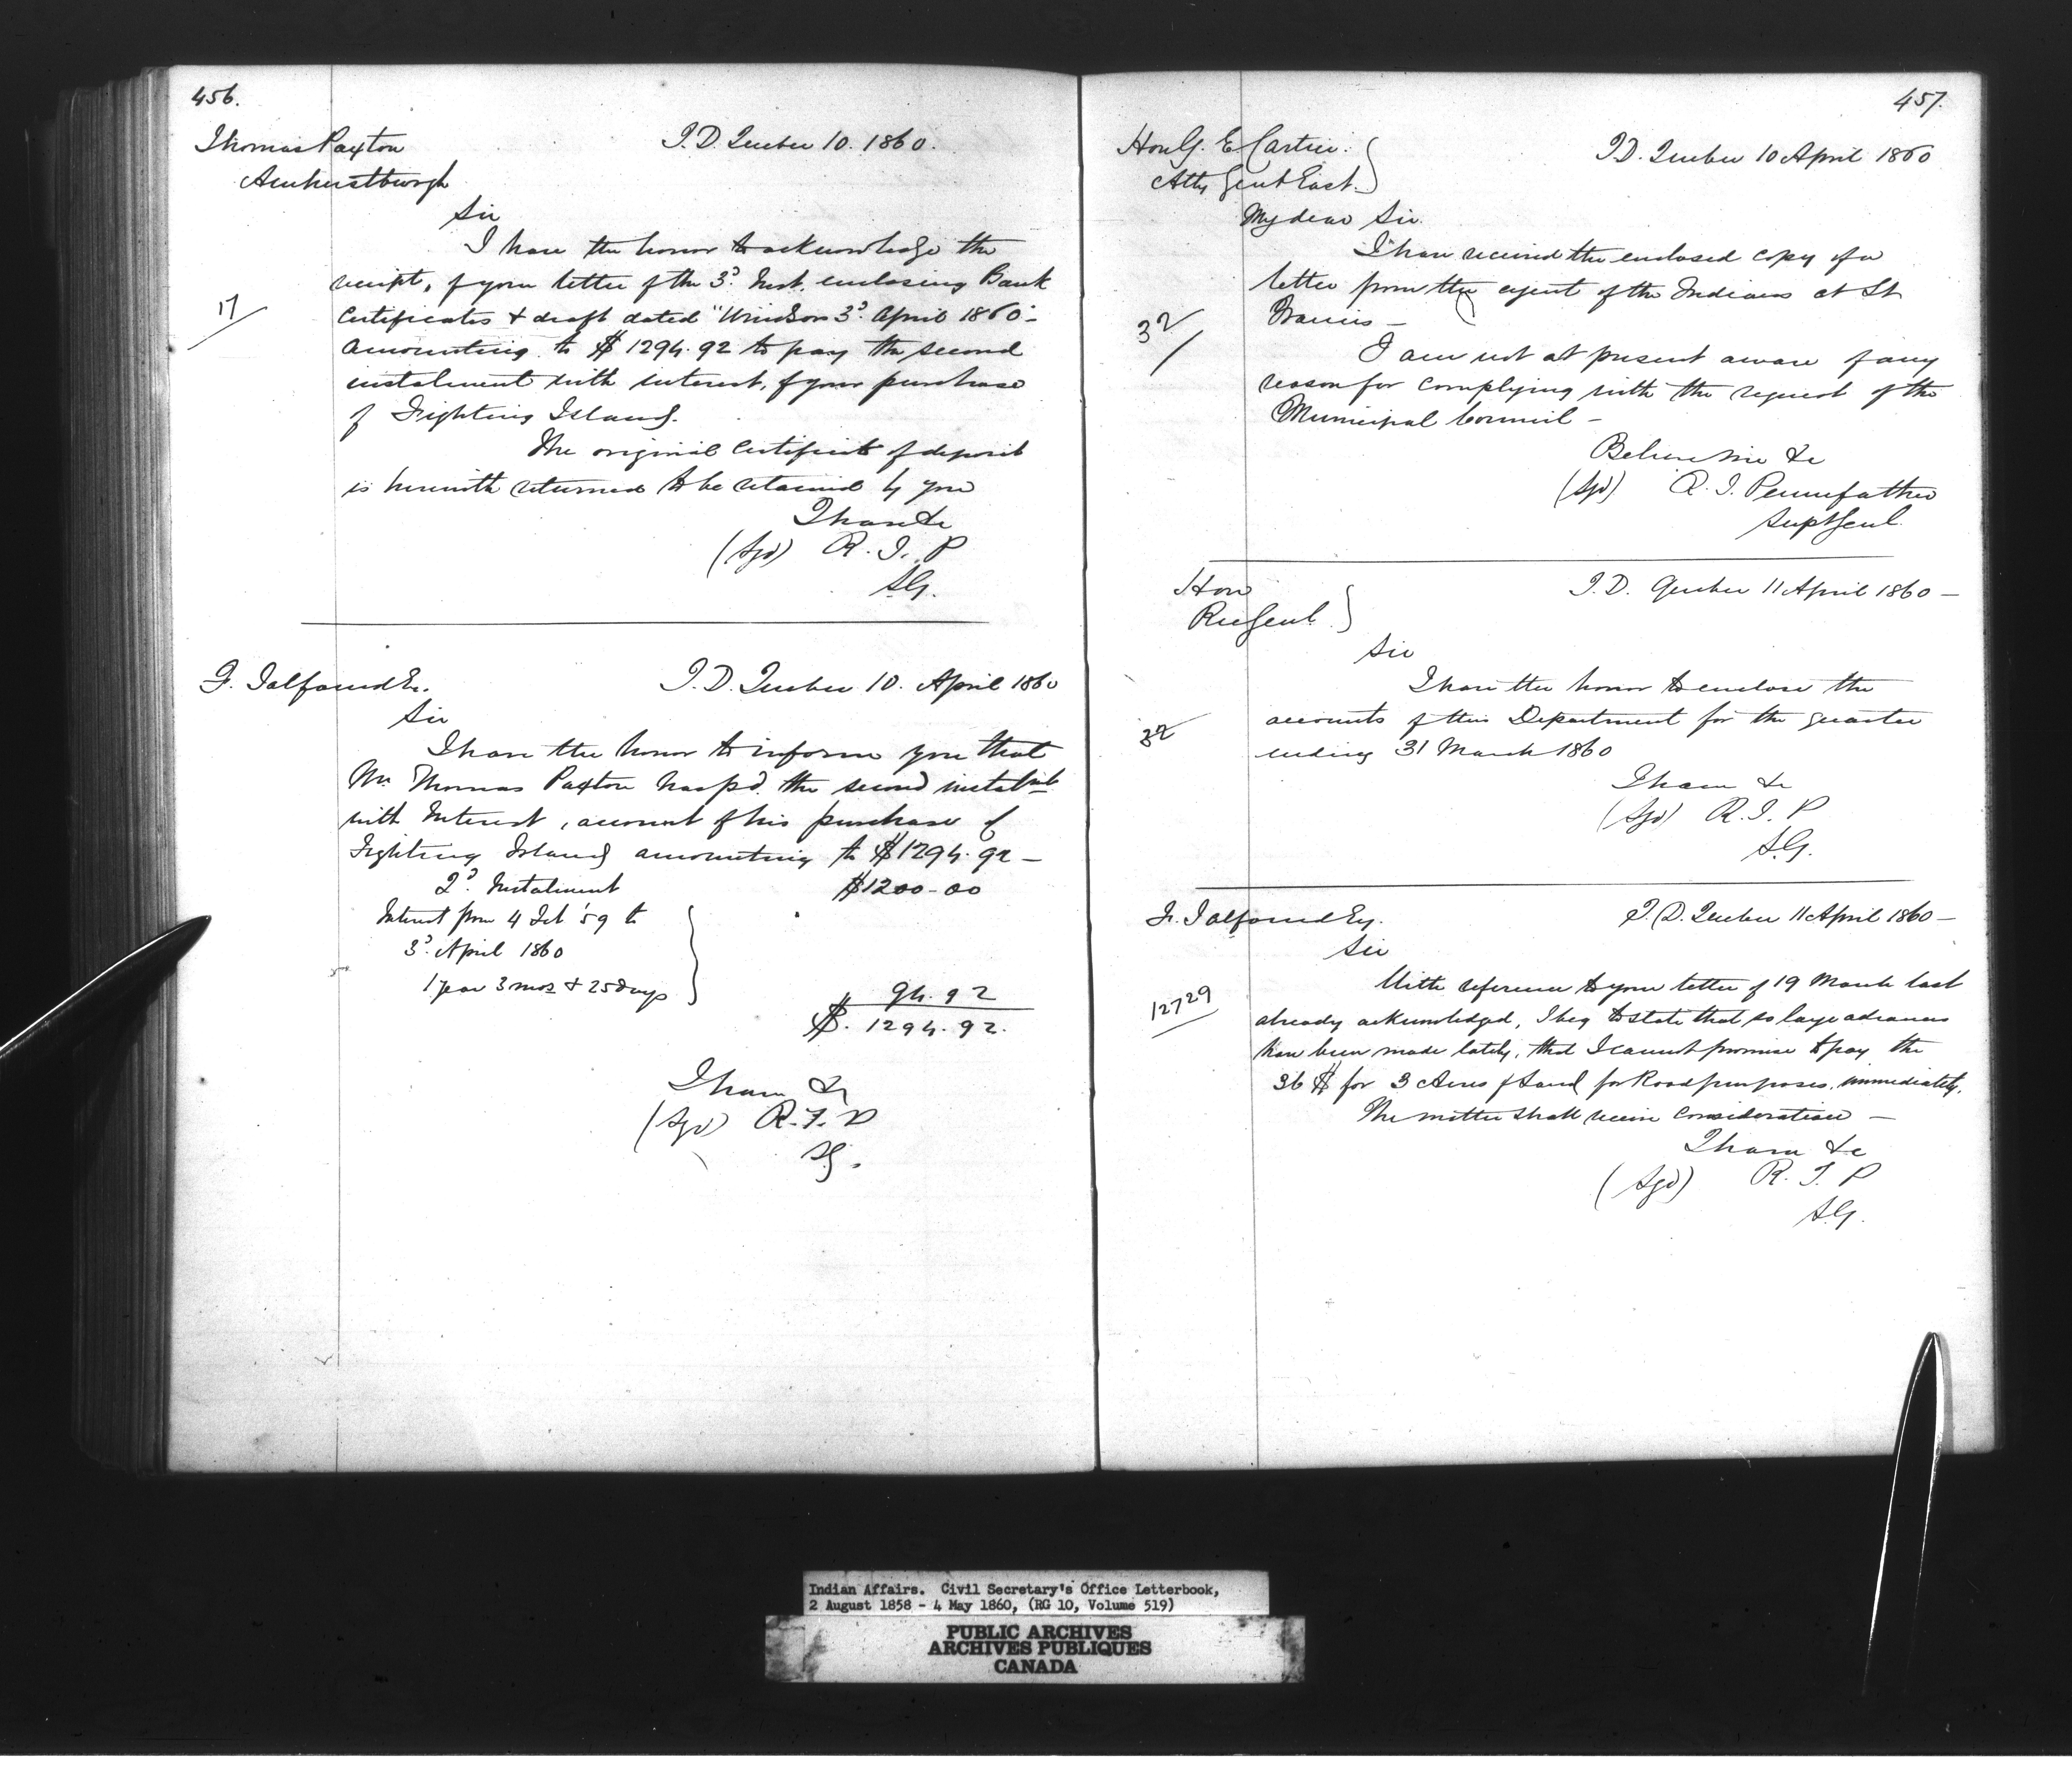 456.
Thomas Paxton
Amherstburgh
I.D. Quebec 10. 1860.
Sir
I have the honor to acknowledge the
receipt, of your letter of the 3d. Inst. enclosing Bank
17
Certificates & draft dated "Windsor 3d. April 1860 -
amounting to $ 1294.92 to pay the second
instalment with interest, of your purchase
of Fighting Island.
The original Certificate of deposit
is herewith returned to be retained by you
I have &c
(Sgd) R. T. P
S.G.
F. Talfourd Er.
I.D. Quebec 10. April 1860
Sir
I have the honor to inform you that
Mr. Thomas Paxton has pd. the second instalmt
with Interest, account of his purchase of
Fighting Island amounting to $1294.92 -
2d. Instalment $1200-00
Interest from 4 Feb '59 to
3d. April 1860
1 year 3 mos & 25 days
94.92
$. 1294.92.
I have &c
(Sgd) R. T. P
SG.
457.
Hon G. E Cartier.
Atty Genl East.
I.D. Quebec 10 April 1860
My dear Sir.
I have received the enclosed copy of a
letter from the agent of the Indians at St
Francis -
32
I am not at present aware of any
reason for complying with the request of the
Municipal Council -
Believe me &c
(Sgd) R. T. Pennefather
Supt Genl.
Hon
Re Genl.
I.D. Quebec 11 April 1860 -
Sir
I have the honor to enclose the
accounts of this Department for the quarter
32
ending 31 March 1860
I have &c
(Sgd) R. T. P
S.G.
F. Talfourd Esq.
I.D. Quebec 11 April 1860 -
Sir
With reference to your letter of 19 March last
12729
already acknowledged, I beg to state that so large advances
have been made lately, that I cannot promise to pay the
36 $ for 3 Acres of Land for Road purposes, immediately.
The matter shall receive consideration -
I have &c
(Sgd) R. T. P
S.G.
Indian Affairs. Civil Secretary's Office Letterbook,
2 August 1858 - 4 May 1860, (RG 10, Volume 519)
PUBLIC ARCHIVES
ARCHIVES PUBLIQUES
CANADA